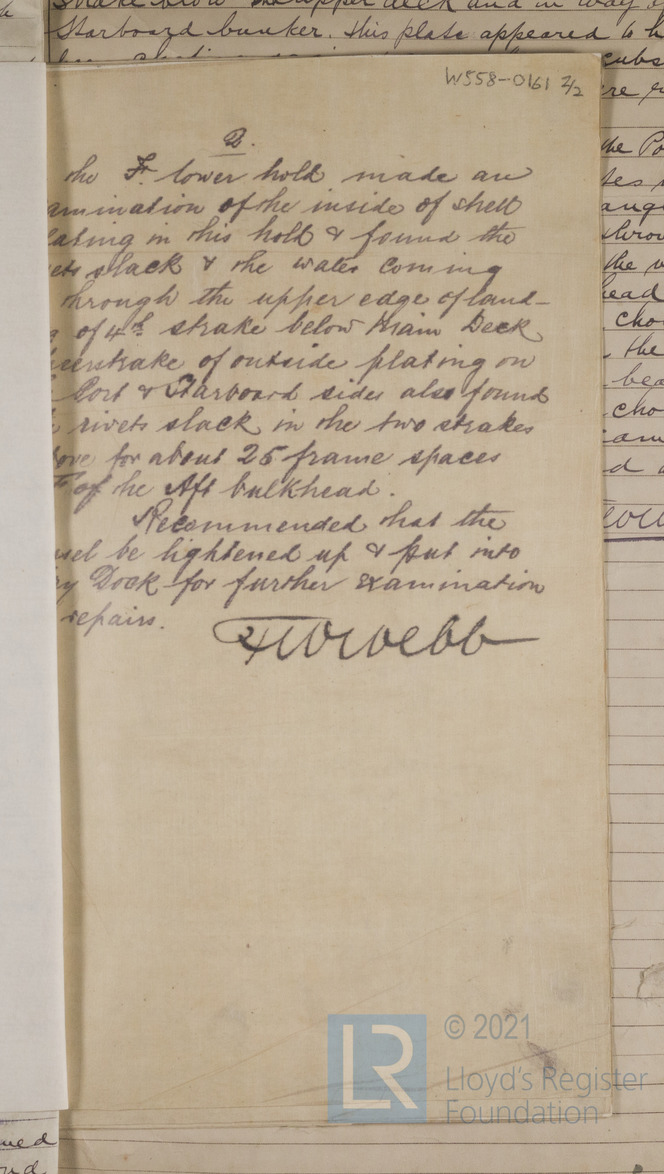 strake below the upper deck and in way of
Starboard bunker. This plate appeared to
W558-0161 2/2
2.
the Fr. lower hold made an
amination of the inside of shell
lating in this hold & found the
ets slack & the water coming
through the upper edge of land-
g of 4th strake below Main Deck
eerstrake of outside plating on
Port & Starboard sides also found
rivets slack in the two strakes
ove for about 25 frame spaces
of the Aft bulkhead.
Recommended that the
ssel be lightened up & put into
ry Dock for further examination
repairs.
Webb
the Po
the
head
the
LR
© 2021
Lloyd's Register
Foundation